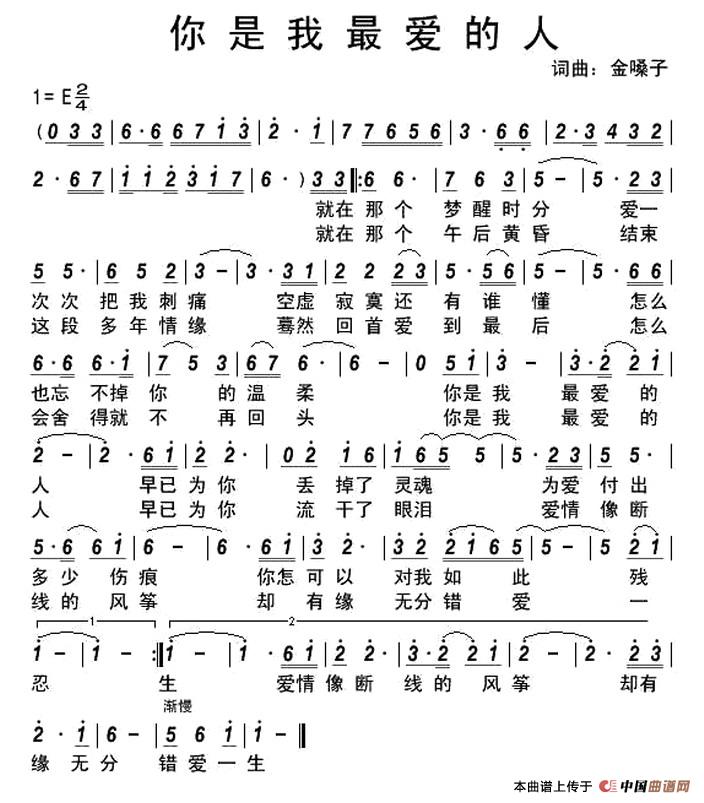 你是我最爱的人
词曲：金嗓子
1=E2/4
(0 3 3|6·6 6 7 1 3|2· 1|7 7 6 5 6|3· 6 6|2·3 4 3 2|
2·6 7|1 1 2 3 1 7|6·) 3 3‖:6 6·|7 6 3|5 -|5· 2 3|
就在 那个 梦醒时分 爱一
就在 那个 午后黄昏 结束
5 5·|6 5 2|3 -|3· 3 1|2 2 2 3|5· 6 5|5 -|5· 6 6|
次次 把我刺痛 空虚 寂寞还 有谁懂 怎么
这段 多年情缘 蓦然 回首爱 到最后 怎么
6·6 6·1|7 5 3|6 7 6·|6 -|0 5 1|3 -|3·2 2 1|
也忘 不掉你 的温柔 你是我 最爱的
会舍 得就不 再回头 你是我 最爱的
2 -|2· 6 1|2 2·|0 2 1 6|1 6 5 5|5· 2 3|5 5·|
人 早已为你 丢掉了灵魂 为爱付出
人 早已为你 流干了眼泪 爱情像断
5·6 6 1|6 -|6· 6 1|3 2·|3 2 2 1 6 5|5 - 5 2 1|
多少伤痕 你怎可以 对我如此 残
线的风筝 却有缘 无分错爱 一
1 2
1 -|1 - :‖1 -|1· 6 1|3 2|2· 3|3 2 1|2 -|2· 2 3|
忍 生 爱情像断 线的风筝 却有
渐慢
2· 1|6 -|5 6 1|1 -‖
缘无分 错爱一生
本曲谱上传于 中国曲谱网